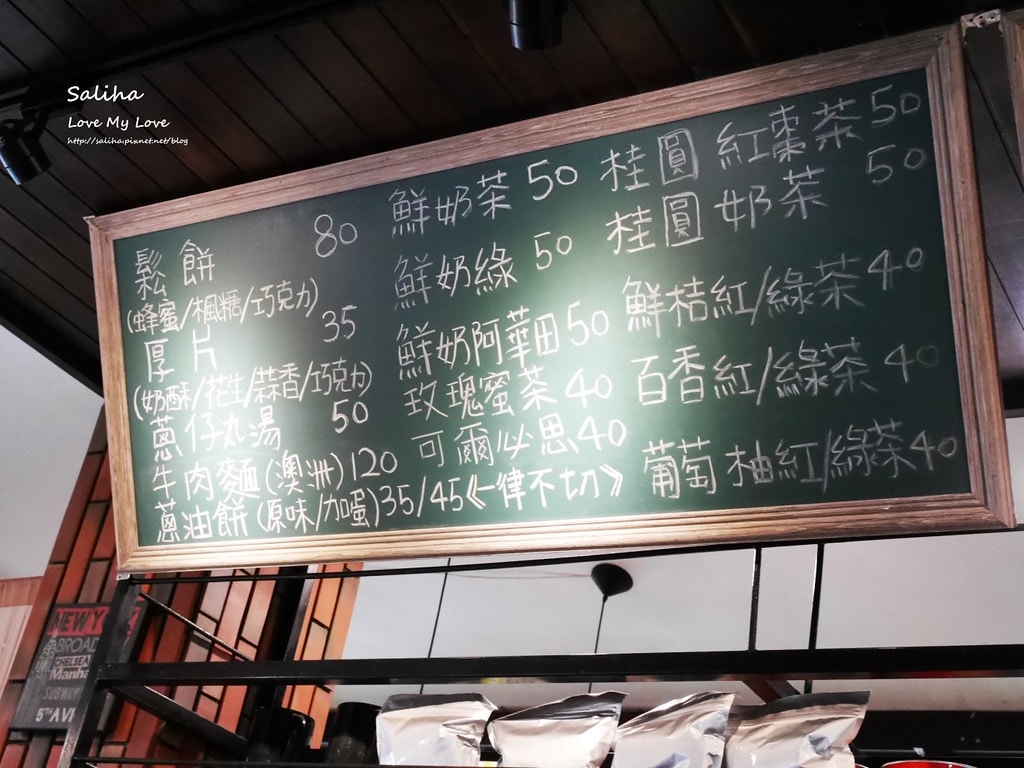 Saliha
Love My Love
http://saliha.pixnet.net/blog
鬆餅 80
(蜂蜜/楓糖/巧克力)
厚片 35
(奶酥/花生/蒜香/巧克力)
蔥仔丸湯 50
牛肉麵(澳洲)120
蔥油餅(原味/加蛋)35/45《一律不切》
鮮奶茶 50
鮮奶綠 50
鮮奶阿華田 50
玫瑰蜜茶 40
可爾必思 40
桂圓紅棗茶 50
桂圓奶茶 50
鮮桔紅/綠茶 40
百香紅/綠茶 40
葡萄柚紅/綠茶 40
NEW Y
BROAD
CHELSEA
Marsha
SUBWAY
5TH AV